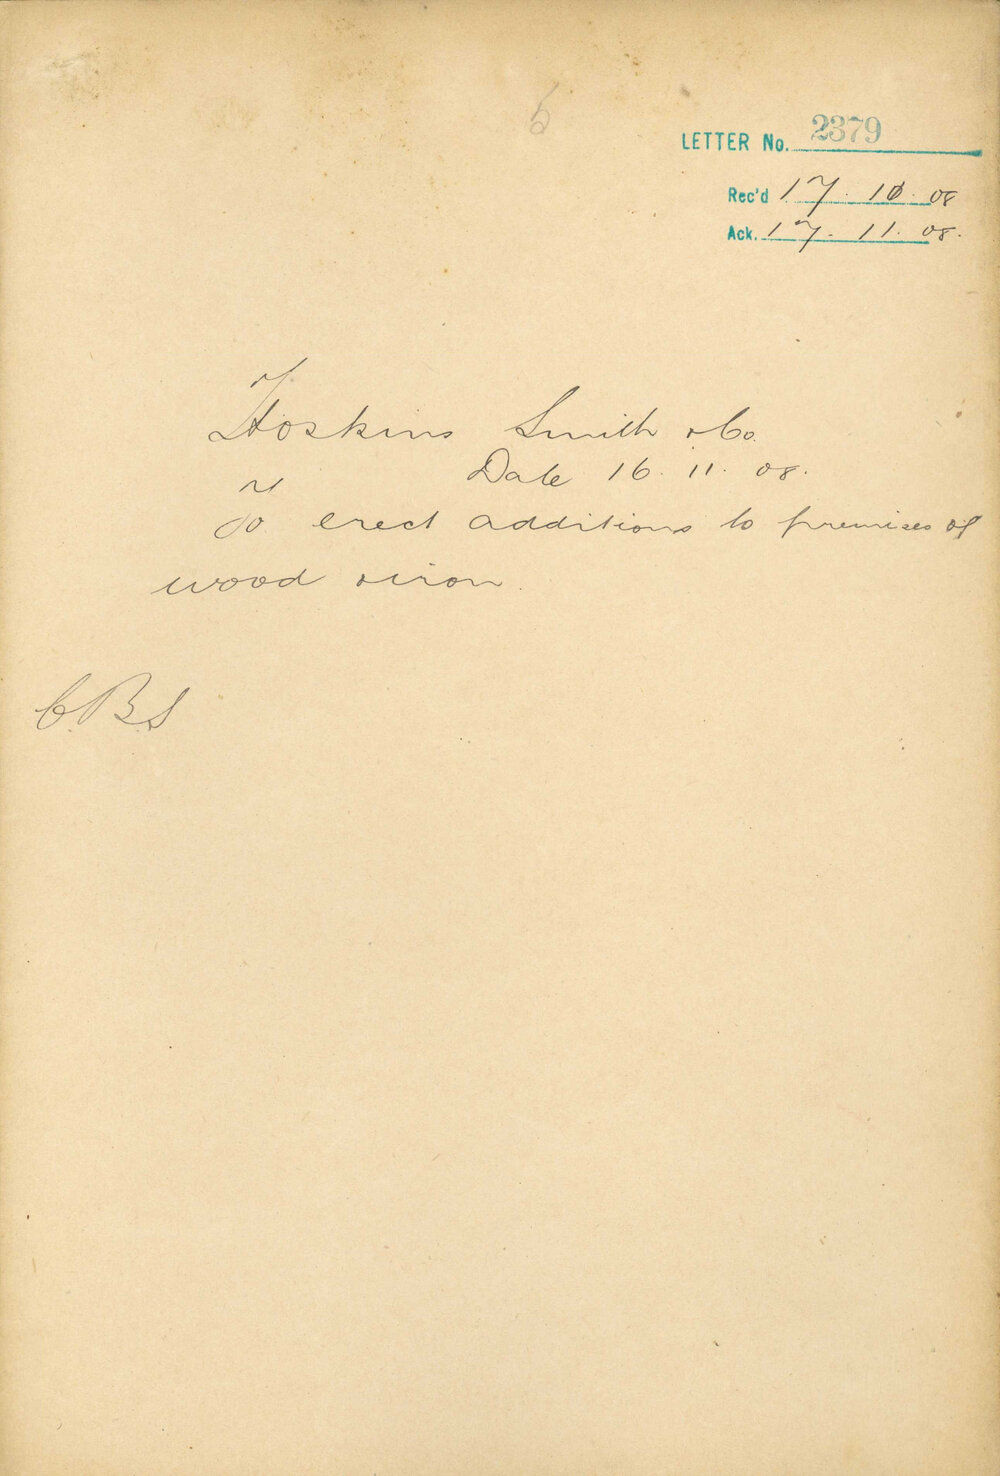 5
LETTER No. 2379
Rec'd 17. 10. 08
Ack. 17. 11. 08.
Hoskins Smith & Co.
Date 16. 11. 08.
To erect additions to premises of
wood & iron.
C.B.S